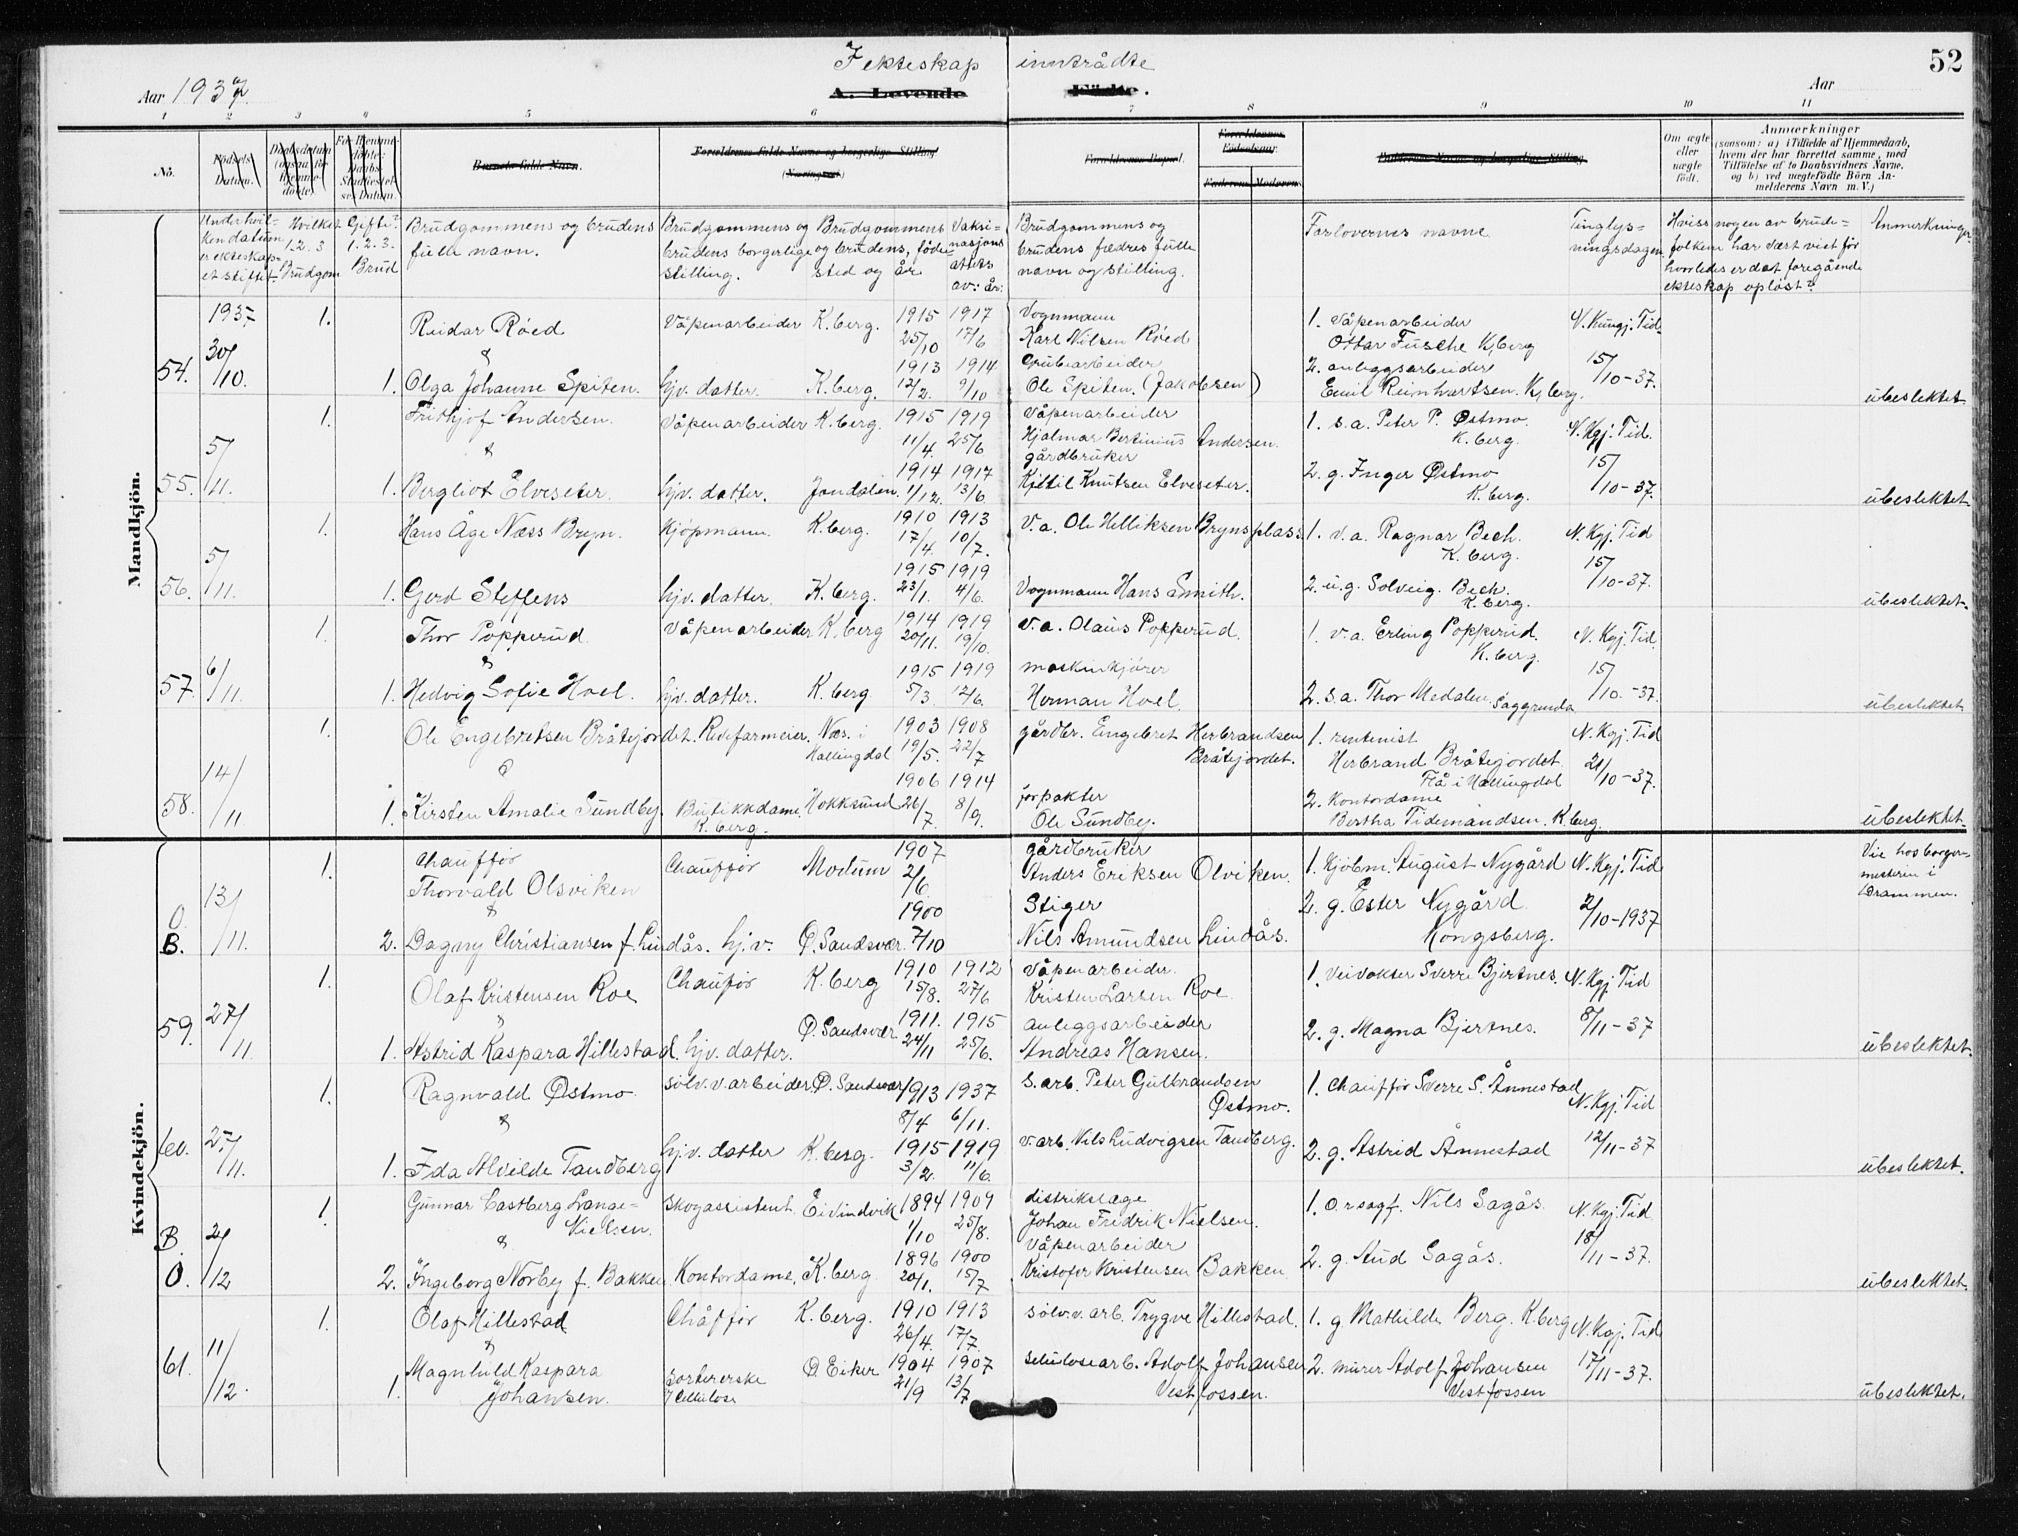 52
I ekteskap inntrådte
Aar 1937.
A. Levende Fødte.
Aar
1 2 3 4 5 6 7 8 9 10 11
No.
Fødsels-Datum.
Daabsdatum
Barnets fulde Navn.
Forældrenes fulde Navne og borgerlige Stilling
(Næringsvei)
Forældrenes Bopæl.
Forældrenes Fødselsaar.
Faderens Moderens
Faddernes Navne og borgerlige Stilling
Om ægte eller uægte født.
Anmærkninger
(saasom: a) i Tilfælde af Hjemmedaab, hvem der har forrettet samme, med Tilføielse af to Daabsvidners Navne. og b) ved uægtefødte Børn Anmelderens Navn m. V.)
Under hvilken datum er ekteskapet stiftet.
Hvilket 1.2.3 Brudgom
Gifte? 1.2.3. Brud
Brudgommens og brudens fulle navn.
Brudgommens og brudens borgerlige stilling.
Brudgommens og brudens, føde sted og år
Vaksinasjons attest av: år:
Brudgommens og brudens fædres fulle navn og stilling.
Forlovernes navne
Tinglysningsdagen
Hviss nogen av brudefolkene har vært vist før hvorledes er det foregående ekteskap opløst?
Anmerkninger
Mandkjön.
54. 1937. 30/10. 1. Reidar Röed Våpenarbeider K.berg. 1915 25/10 1917 17/6 Vognmann Karl Nilsen Röed 1. Våpenarbeider Ottar Fusche K.berg N. Kungj. Tid.
&
1. Olga Johanne Spiten. hjv. datter. K.berg. 1913 12/2. 1914 9/10 Grubearbeider Ole Spiten. (Jakobsen) 2. anleggsarbeider Emil Reinhartsen. K,berg. 15/10-37. ubeslektet.
55. 5/11. 1. Frithjof Andersen. Våpenarbeider K.berg. 1915 11/4. 1919 25/6 Våpenarbeider Hjalmar Bertinius Andersen. 1. s.a. Peter P. Østmo. K.berg. N. Kgj. Tid.
&
1. Bergliot Elveseter. hjv. datter. Jondalen. 1914 1/12. 1917 13/6 gårdbruker Kjetil Knutsen Elveseter. 2. g. Inger Østmo K.berg. 15/10-37. ubeslektet
56. 5/11. 1. Hans Åge Næss Bryn. Kjøpmann. K.berg. 1910 17/4. 1913 10/7. V.a. Ole Helliksen Brynsplass. 1. v.a. Ragnar Bech. K.berg. N. Kgj. Tid
1. Gerd Steffens hjv. datter. K.berg. 1915 23/1. 1919 4/6. Vognmann Hans Smith. 2. u.g. Solveig. Bech. K.berg. 15/10-37. ubeslektet.
57. 6/11. 1. Thor Popperud Våpenarbeider K.berg 1914 20/11. 1919 19/10. V.a. Olaus Popperud. 1. v.a. Erling Popperud. K.berg. N. Kgj. Tid.
&
1. Hedvig Sofie Hoel. hjv. datter. K.berg 1915 5/3 1919 12/6. maskinkjører Herman Hoel 2. s.a. Thor Medalen Saggrenda 15/10.-37. ubeslektet
58. 14/11 1. Ole Engebretsen Bråtejordet. Revefarmeier. Næs. i Hallingdal 1903 19/5. 1908 22/7 gårdbr. Engebret Herbrandsen Bråtejordet. 1. rentenist Herbrand Bråtejordet Flå i Hallingdal N. Kgj. Tid
&
1. Kirsten Amalie Sundby. Butikkdame K.berg. Hokksund 1906 26/7. 1914 8/9. forpakter Ole Sundby. 2. Kontordame Bertha Tidemandsen. K.berg. 21/10-37. ubeslektet.
Kvindekjön.
O. B. 13/11. 1. Chauffør Thorvald Olsviken Chauffør Modum 1907 2/6 gårdbruker Anders Eriksen Olviken. 1. Kjöbm. August Nygård N. Kgj. Tid. Vie hos borgermesteren i Drammen.
&
2. Dagny Christiansen f. Lindås. hj.v. Ø. Sandsvær. 1900 7/10 Stiger Nils Amundsen Lindås. 2. g. Ester Nygård. Kongsberg. 2/10-1937
59. 27/11. 1. Olaf Kristensen Roe Chaufør K.berg 1910 15/8. 1912 27/6 Våpenarbeider. Kristen Larsen Roe. 1. Veivokter Sverre Bjertnes. N. Kgj. Tid
1. Astrid Kaspara Hillestad. hjv. datter. Ø. Sandsvær 1911. 24/11 1915 25/6. anleggsarbeider Andreas Hansen. 2. g. Magna Bjertnes. 8/11-37 ubeslektet.
60. 1. Ragnvald Østmo sølv.v.arbeider Ø. Sandsvær 1913 8/4 1937 6/11. s.arb. Peter Gulbrandsen Østmo. 1. Chauffør Sverre S. Ånnestad N. Kgj. Tid
&
1. Ida Alvilde Tandberg hj.v. datter K.berg. 1915 3/2. 1919 11/6. v.arb. Nils Ludvigsen Tandberg. 2. g. Astrid Ånnestad 12/11-37 ubeslektet.
B. O. 2/12 1. Gunnar Castberg Lange-Nielsen. Skogassistent. Eivindvik 1894 1/10 1909 25/8. distrikslæge Johan Fredrik Nielsen. 1. o.rsagf. Nils Sagås. N. Kgj. Tid
&
2. Ingeborg Norby f. Bakken Kontordame, K.berg 1896 20/1. 1900 15/7 Våpenarbeider Kristofer Kristensen Bakken 2. g. Aud Sagås. 18/11-37. ubeslektet.
61. 11/12. 1. Olaf Hillestad Chåffør K.berg. 1910 26/4. 1913 17/7 sølv.v.arb. Trygve Hillestad. 1. g Mathilde Berg. K.berg N. Kgj. Tid
&
1. Magnhild Kaspara Johansen. sortererske / Cellulose Ø. Eiker 1904 21/9 1907 13/7 selulosearb. Adolf Johansen Vestfossen. 2. murer Adolf Johansen Vestfossen 17/11-37. ubeslektet.